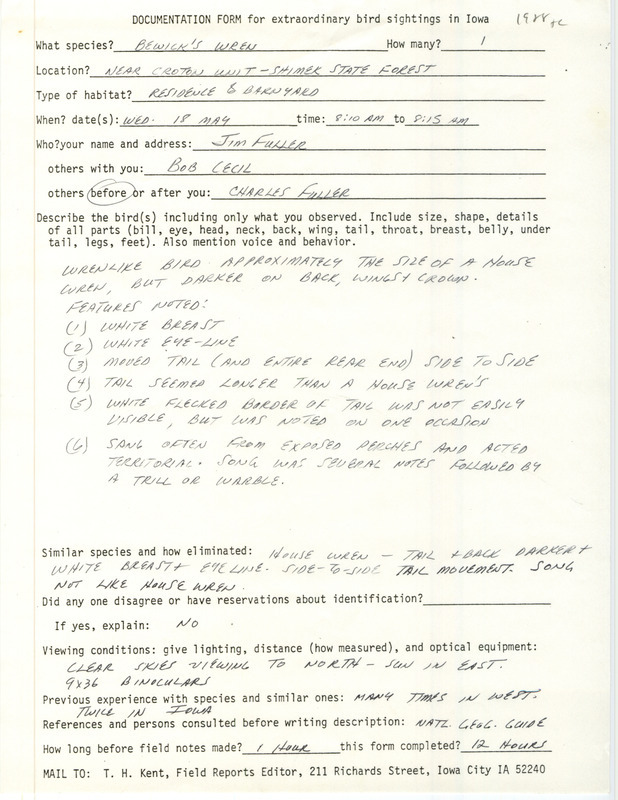 DOCUMENTATION FORM for extraordinary bird sightings in Iowa 1988
What species? BEWICK'S WREN How many? 1
Location? NEAR CROTON UNIT - SHIMEK STATE FOREST
Type of habitat? RESIDENCE & BARNYARD
When? date(s): WED. 18 MAY time: 8:10 AM to 8:15 AM
Who?your name and address: JIM FULLER
others with you: BOB CECIL
others before or after you: CHARLES FULLER
Describe the bird(s) including only what you observed. Include size, shape, details
of all parts (bill, eye, head, neck, back, wing, tail, throat, breast, belly, under
tail, legs, feet). Also mention voice and behavior.
WRENLIKE BIRD APPROXIMATELY THE SIZE OF A HOUSE
WREN, BUT DARKER ON BACK, WINGS + CROWN.
FEATURES NOTED:
(1) WHITE BREAST
(2) WHITE EYE-LINE
(3) MOVED TAIL (AND ENTIRE REAR END) SIDE TO SIDE
(4) TAIL SEEMED LONGER THAN A HOUSE WREN'S
(5) WHITE FLECKED BORDER OF TAIL WAS NOT EASILY
VISIBLE, BUT WAS NOTED ON ONE OCCASION
(6) SANG OFTEN FROM EXPOSED PERCHES AND ACTED
TERRITORIAL. SONG WAS SEVERAL NOTES FOLLOWED BY
A TRILL OR WARBLE.
Similar species and how eliminated: HOUSE WREN - TAIL + BACK DARKER +
WHITE BREAST + EYELINE. SIDE-TO-SIDE TAIL MOVEMENT. SONG
NOT LIKE HOUSE WREN.
Did any one disagree or have reservations about identification?
If yes, explain: NO
Viewing conditions: give lighting, distance (how measured), and optical equipment:
CLEAR SKIES VIEWING TO NORTH - SUN IN EAST.
9X36 BINOCULARS
Previous experience with species and similar ones: MANY TIMES IN WEST.
TWICE IN IOWA
References and persons consulted before writing description: NATL. GEOG. GUIDE
How long before field notes made? 1 HOUR this form completed? 12 HOURS
MAIL TO: T. H. Kent, Field Reports Editor, 211 Richards Street, Iowa City IA 52240